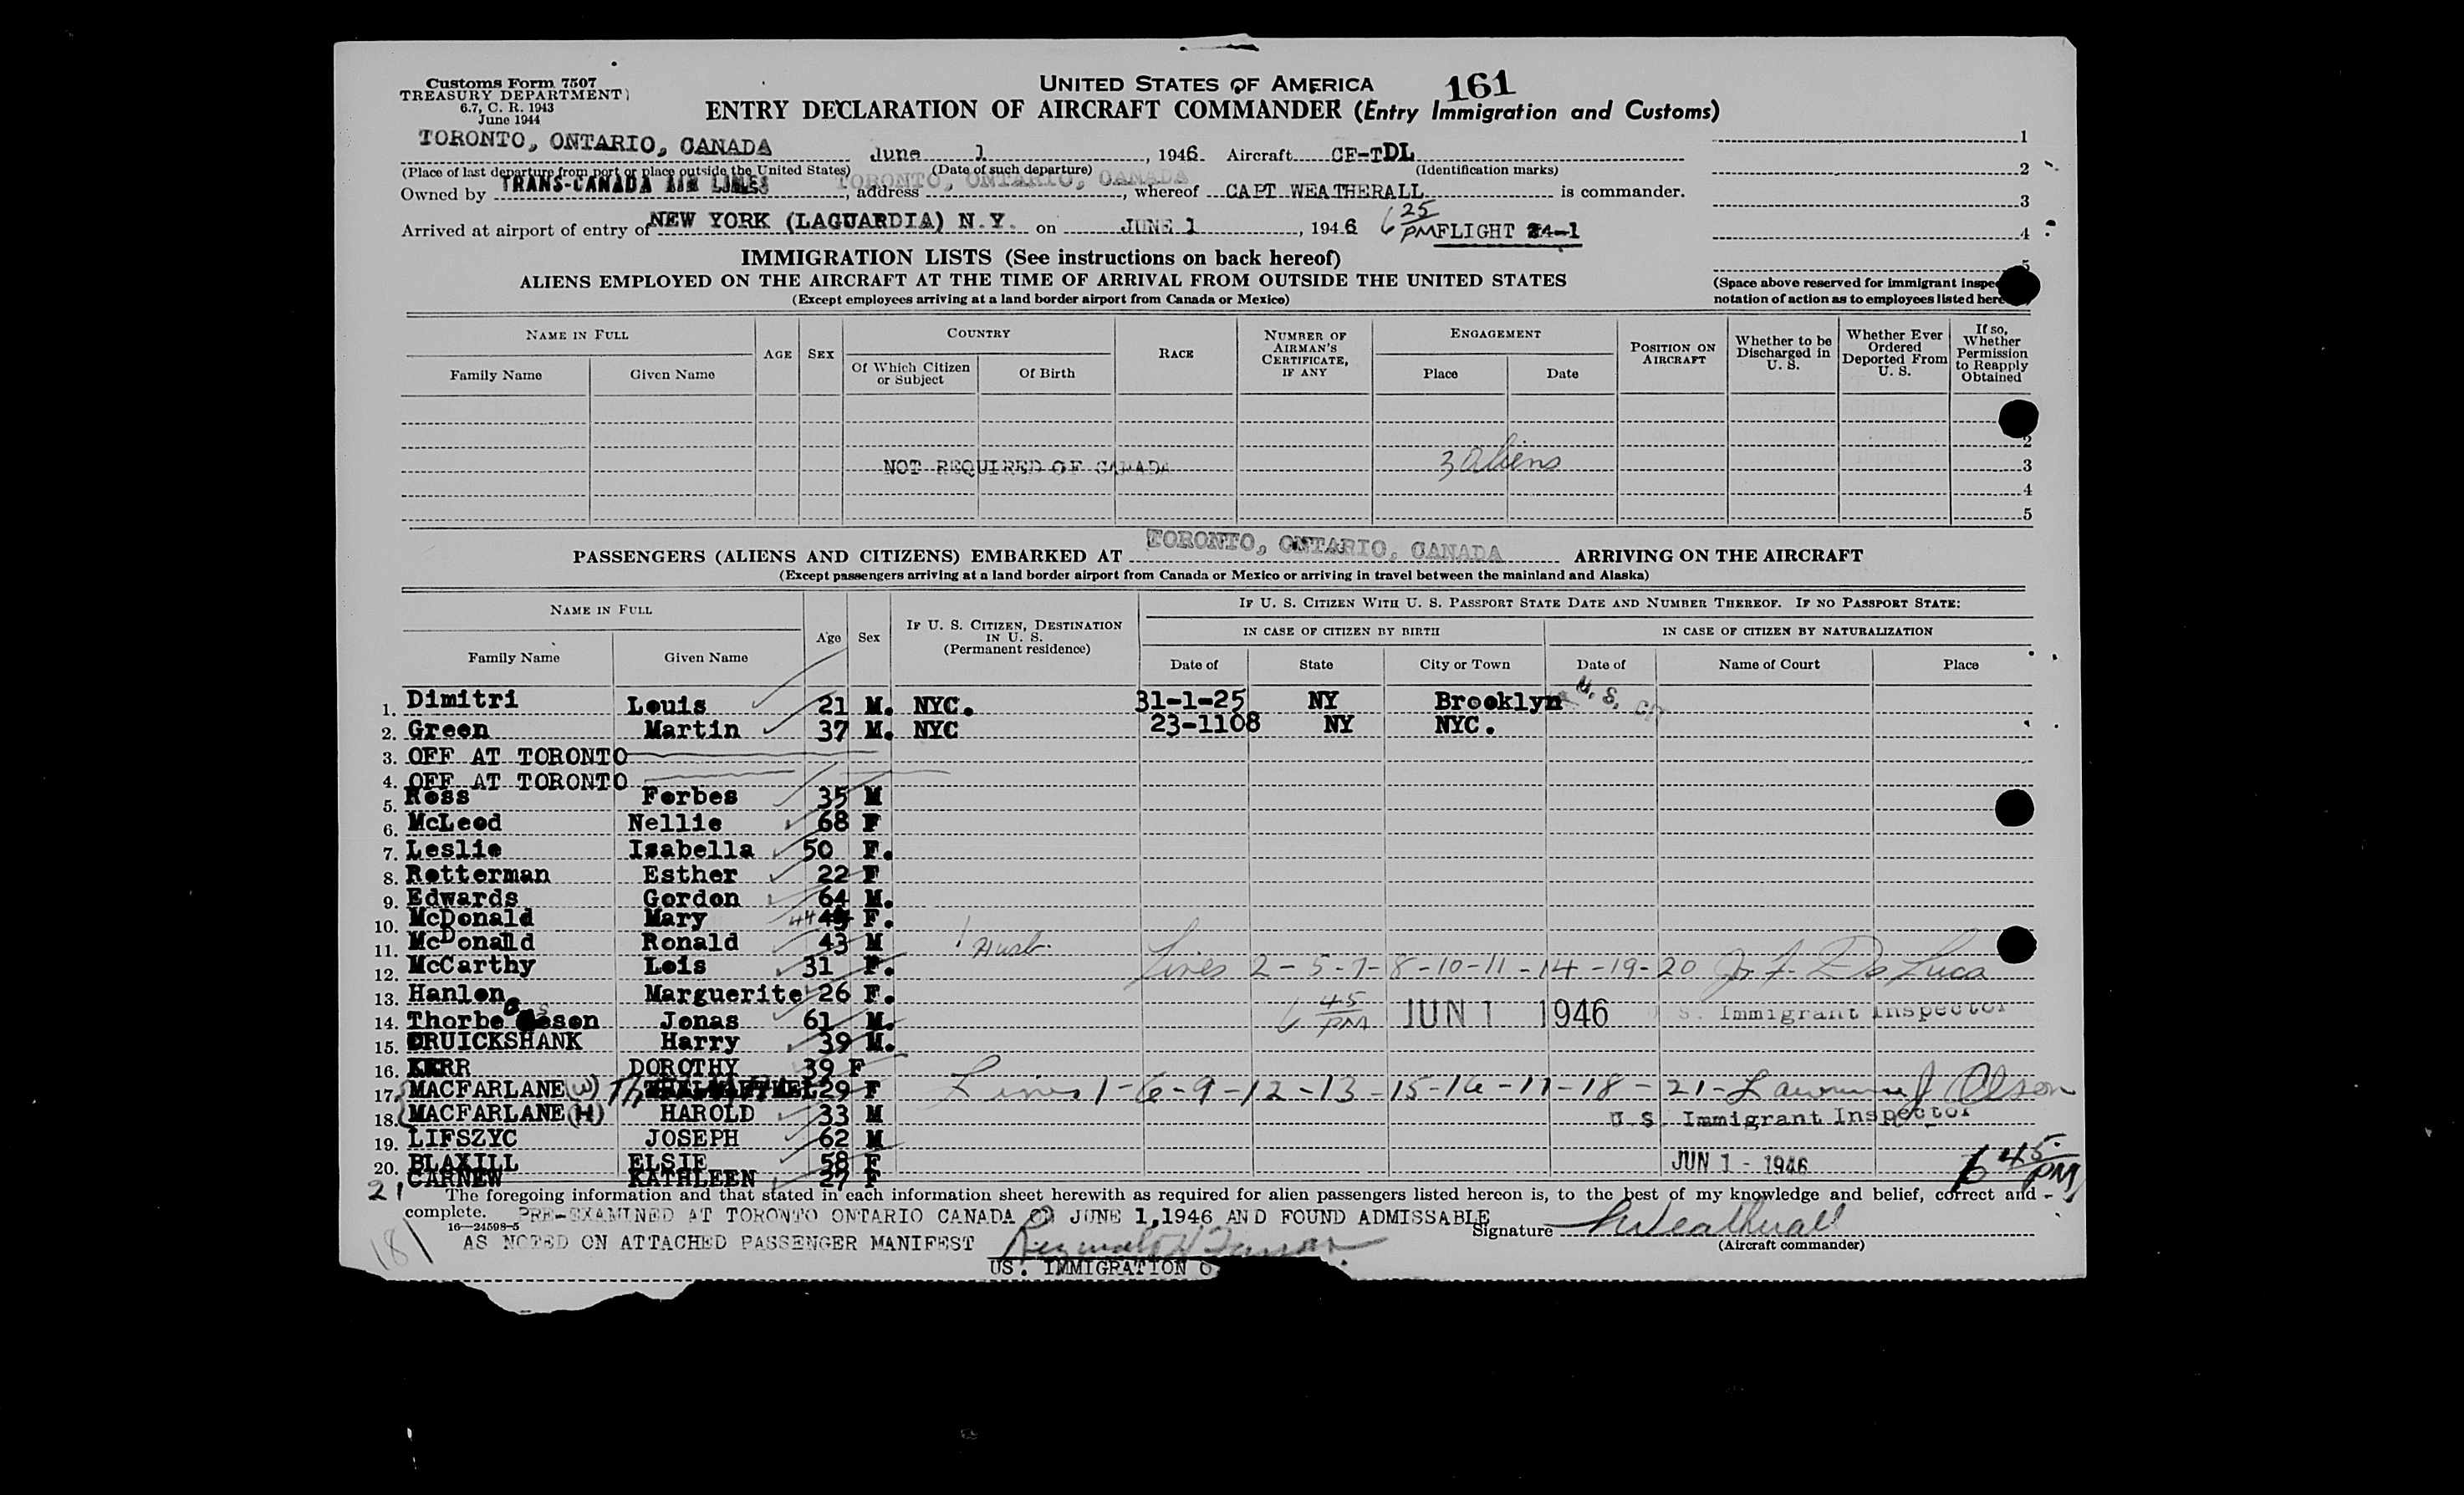 Customs Form 7507
TREASURY DEPARTMENT
6.7, C. R. 1943
June 1944
UNITED STATES OF AMERICA 161
ENTRY DECLARATION OF AIRCRAFT COMMANDER (Entry Immigration and Customs)
TORONTO, ONTARIO, CANADA June 1, 1946 Aircraft CF-TDL
(Place of last departure from port or place outside the United States) (Date of such departure) (Identification marks)
Owned by TRANS-CANADA AIR LINES, address TORONTO, ONTARIO, CANADA, whereof CAPT WEATHERALL is commander.
Arrived at airport of entry of NEW YORK (LAGUARDIA) N.Y. on JUNE 1, 1946 6 25 PM FLIGHT 24-1
1
2
3
4
5
(Space above reserved for immigrant inspe
notation of action as to employees listed here
IMMIGRATION LISTS (See instructions on back hereof)
ALIENS EMPLOYED ON THE AIRCRAFT AT THE TIME OF ARRIVAL FROM OUTSIDE THE UNITED STATES
(Except employees arriving at a land border airport from Canada or Mexico)
NAME IN FULL
Family Name Given Name
AGE
SEX
COUNTRY
Of Which Citizen or Subject
Of Birth
RACE
NUMBER OF AIRMAN'S CERTIFICATE, IF ANY
ENGAGEMENT
Place Date
POSITION ON AIRCRAFT
Whether to be Discharged in U. S.
Whether Ever Ordered Deported From U. S.
If so, Whether Permission to Reapply Obtained
2
NOT REQUIRED OF CANADA 3 Aliens 3
4
5
PASSENGERS (ALIENS AND CITIZENS) EMBARKED AT TORONTO, ONTARIO, CANADA ARRIVING ON THE AIRCRAFT
(Except passengers arriving at a land border airport from Canada or Mexico or arriving in travel between the mainland and Alaska)
NAME IN FULL
Family Name Given Name
Age
Sex
IF U. S. CITIZEN, DESTINATION IN U. S. (Permanent residence)
IF U. S. CITIZEN WITH U. S. PASSPORT STATE DATE AND NUMBER THEREOF. IF NO PASSPORT STATE:
IN CASE OF CITIZEN BY BIRTH
IN CASE OF CITIZEN BY NATURALIZATION
Date of State City or Town Date of Name of Court Place
1. Dimitri Louis 21 M. NYC. 31-1-25 NY Brooklyn U. S.
2. Green Martin 37 M. NYC 23-1108 NY NYC.
3. OFF AT TORONTO
4. OFF AT TORONTO
5. Ross Forbes 35 M
6. McLeod Nellie 68 F
7. Leslie Isabella 50 F.
8. Rotterman Esther 22 F
9. Edwards Gordon 64 M.
10. McDonald Mary 44 F.
11. McDonald Ronald 43 M
12. McCarthy Lois 31 F. Lines 2-5-7-8-10-11-14-19-20 De Luca
13. Hanlon Marguerite 26 F.
14. Thorbe son Jonas 61 M. 6 45 PM JUN 1 1946 S. Immigrant Inspector
15. CRUICKSHANK Harry 39 M.
16. KERR DOROTHY 39 F
17. MACFARLANE (W) 29 F Lines 1-6-9-12-13-15-16-17-18-21- Lawrence J Olson
18. MACFARLANE (H) HAROLD 33 M U.S. Immigrant Inspector
19. LIFSZYC JOSEPH 62 M
20. BLAXILL ELSIE 58 F JUN 1 - 1946 6 45 PM
21 CARNEW KATHLEEN 27 F
The foregoing information and that stated in each information sheet herewith as required for alien passengers listed hereon is, to the best of my knowledge and belief, correct and
complete. PRE-EXAMINED AT TORONTO ONTARIO CANADA ON JUNE 1,1946 AND FOUND ADMISSABLE
16—24598-5
AS NOTED ON ATTACHED PASSENGER MANIFEST
Signature Weatherall
(Aircraft commander)
US. IMMIGRATION O
181